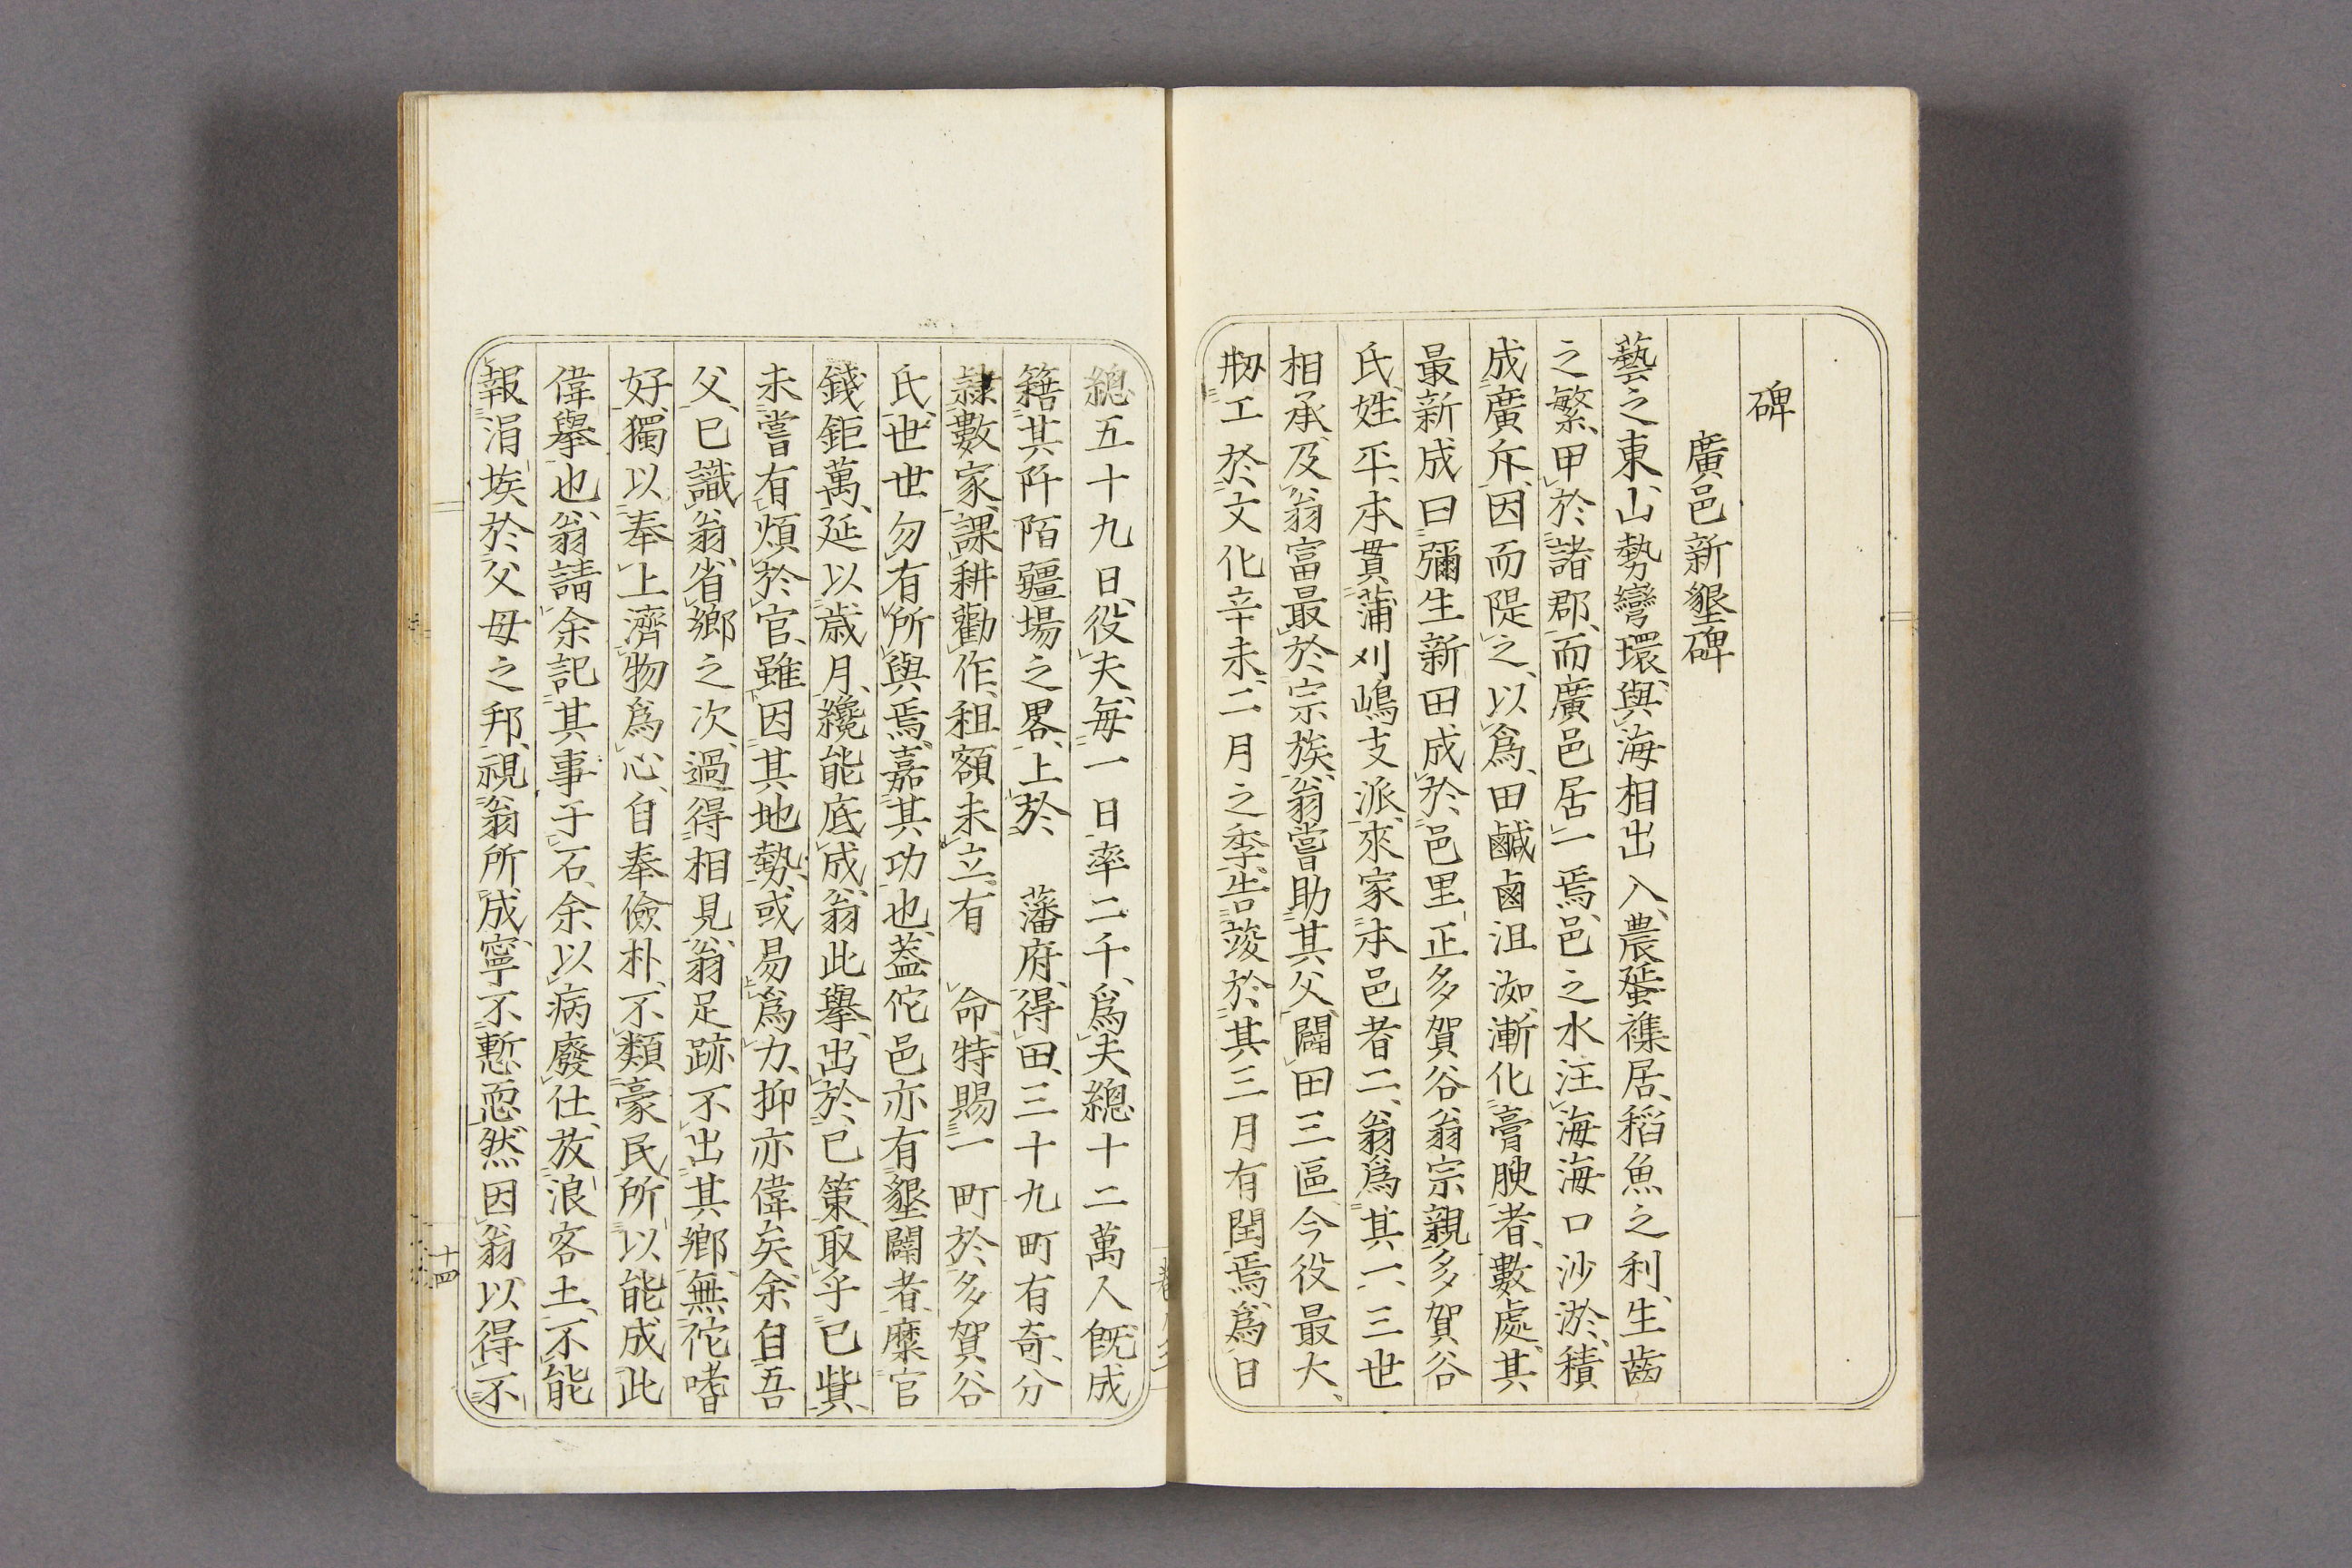 碑
廣邑新墾碑
藝之東山勢彎環與海相出入農蜑襍居稻魚之利生齒
之繁甲於諸郡而廣邑居一焉邑之水注海海口沙淤積
成廣斥因而隄之以爲田鹹鹵沮洳漸化膏腴者數處其
最新成曰彌生新田成於邑里正多賀谷翁宗親多賀谷
氏姓平本貫蒲刈嶋支派來家本邑者二翁爲其一三世
相承及翁富最於宗族翁嘗助其父闢田三區今役最大
刱工於文化辛未二月之季告竣於其三月有閏焉爲日
總五十九日役夫每一日率二千爲夫總十二萬人既成
籍其阡陌疆場之畧上於藩府得田三十九町有奇分
隸數家課耕勸作租額未立有命特賜一町於多賀谷
氏世世勿有所與焉嘉其功也蓋佗邑亦有墾闢者糜官
錢鉅萬延以歳月纔能底成翁此擧出於己策取乎己貲
未嘗有煩於官雖因其地勢或易爲力抑亦偉矣余自吾
父已識翁省鄉之次過得相見翁足跡不出其鄉無佗嗜
好獨以奉上濟物爲心自奉儉朴不類豪民所以能成此
偉擧也翁請余記其事于石余以病廢仕放浪客土不能
報涓埃於父母之邦視翁所成寧不慙恧然因翁以得不
十四